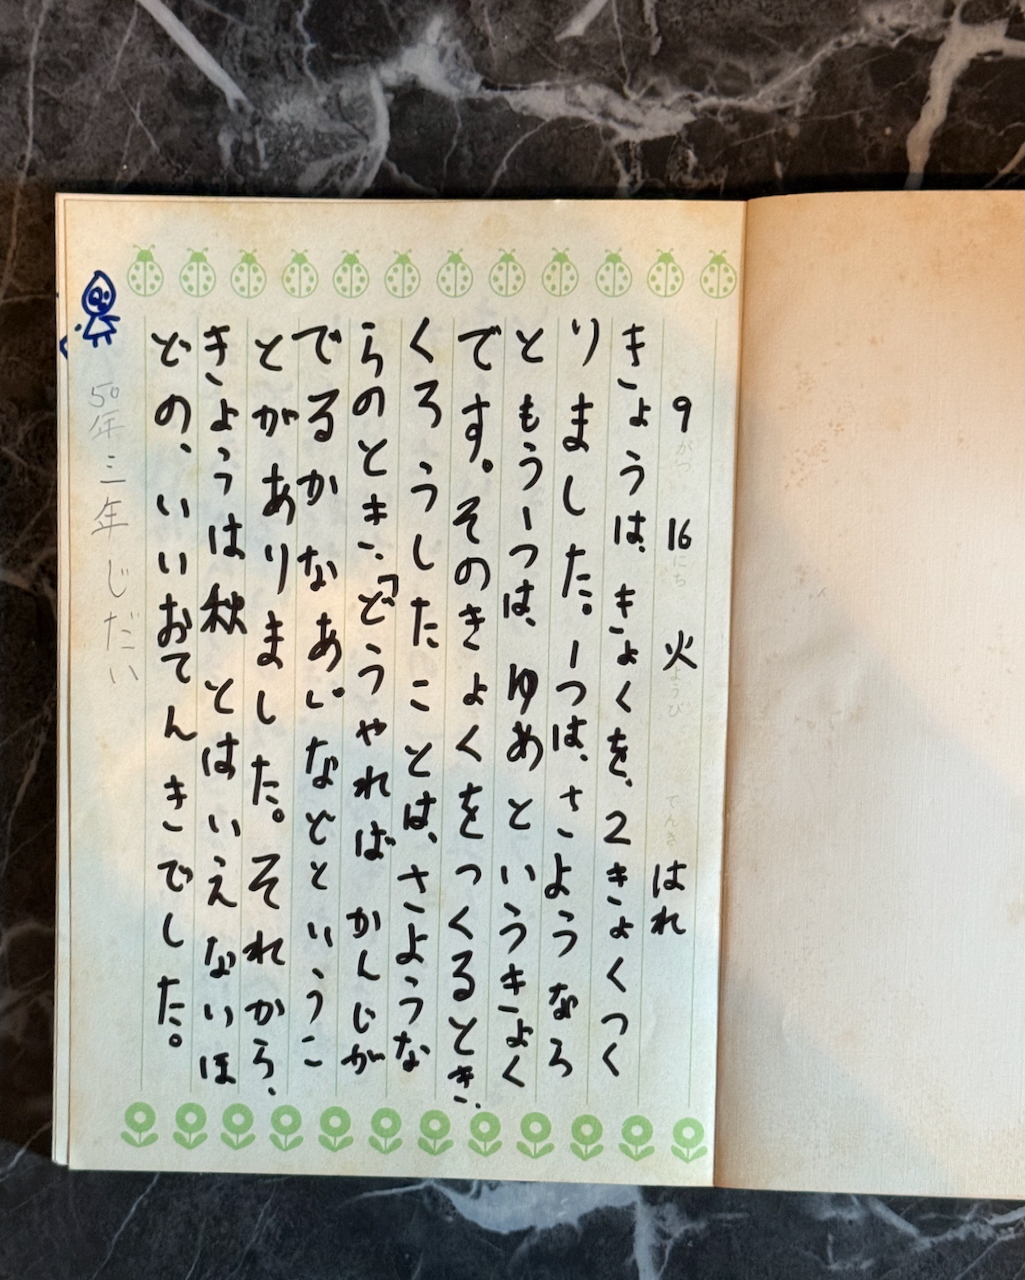 9がつ 16にち 火ようび てんき はれ
きょうは、きょくを、2きょくつく
りました。一つは、さようなら
ともう一つは、ゆめというきょく
です。そのきょくをつくるとき、
くろうしたことは、さような
らのとき、「どうやればかんじが
でるかなあ。」などというこ
とがありました。それから、
きょうは秋とはいえないほ
どの、いいおてんきでした。
50年三年じだい